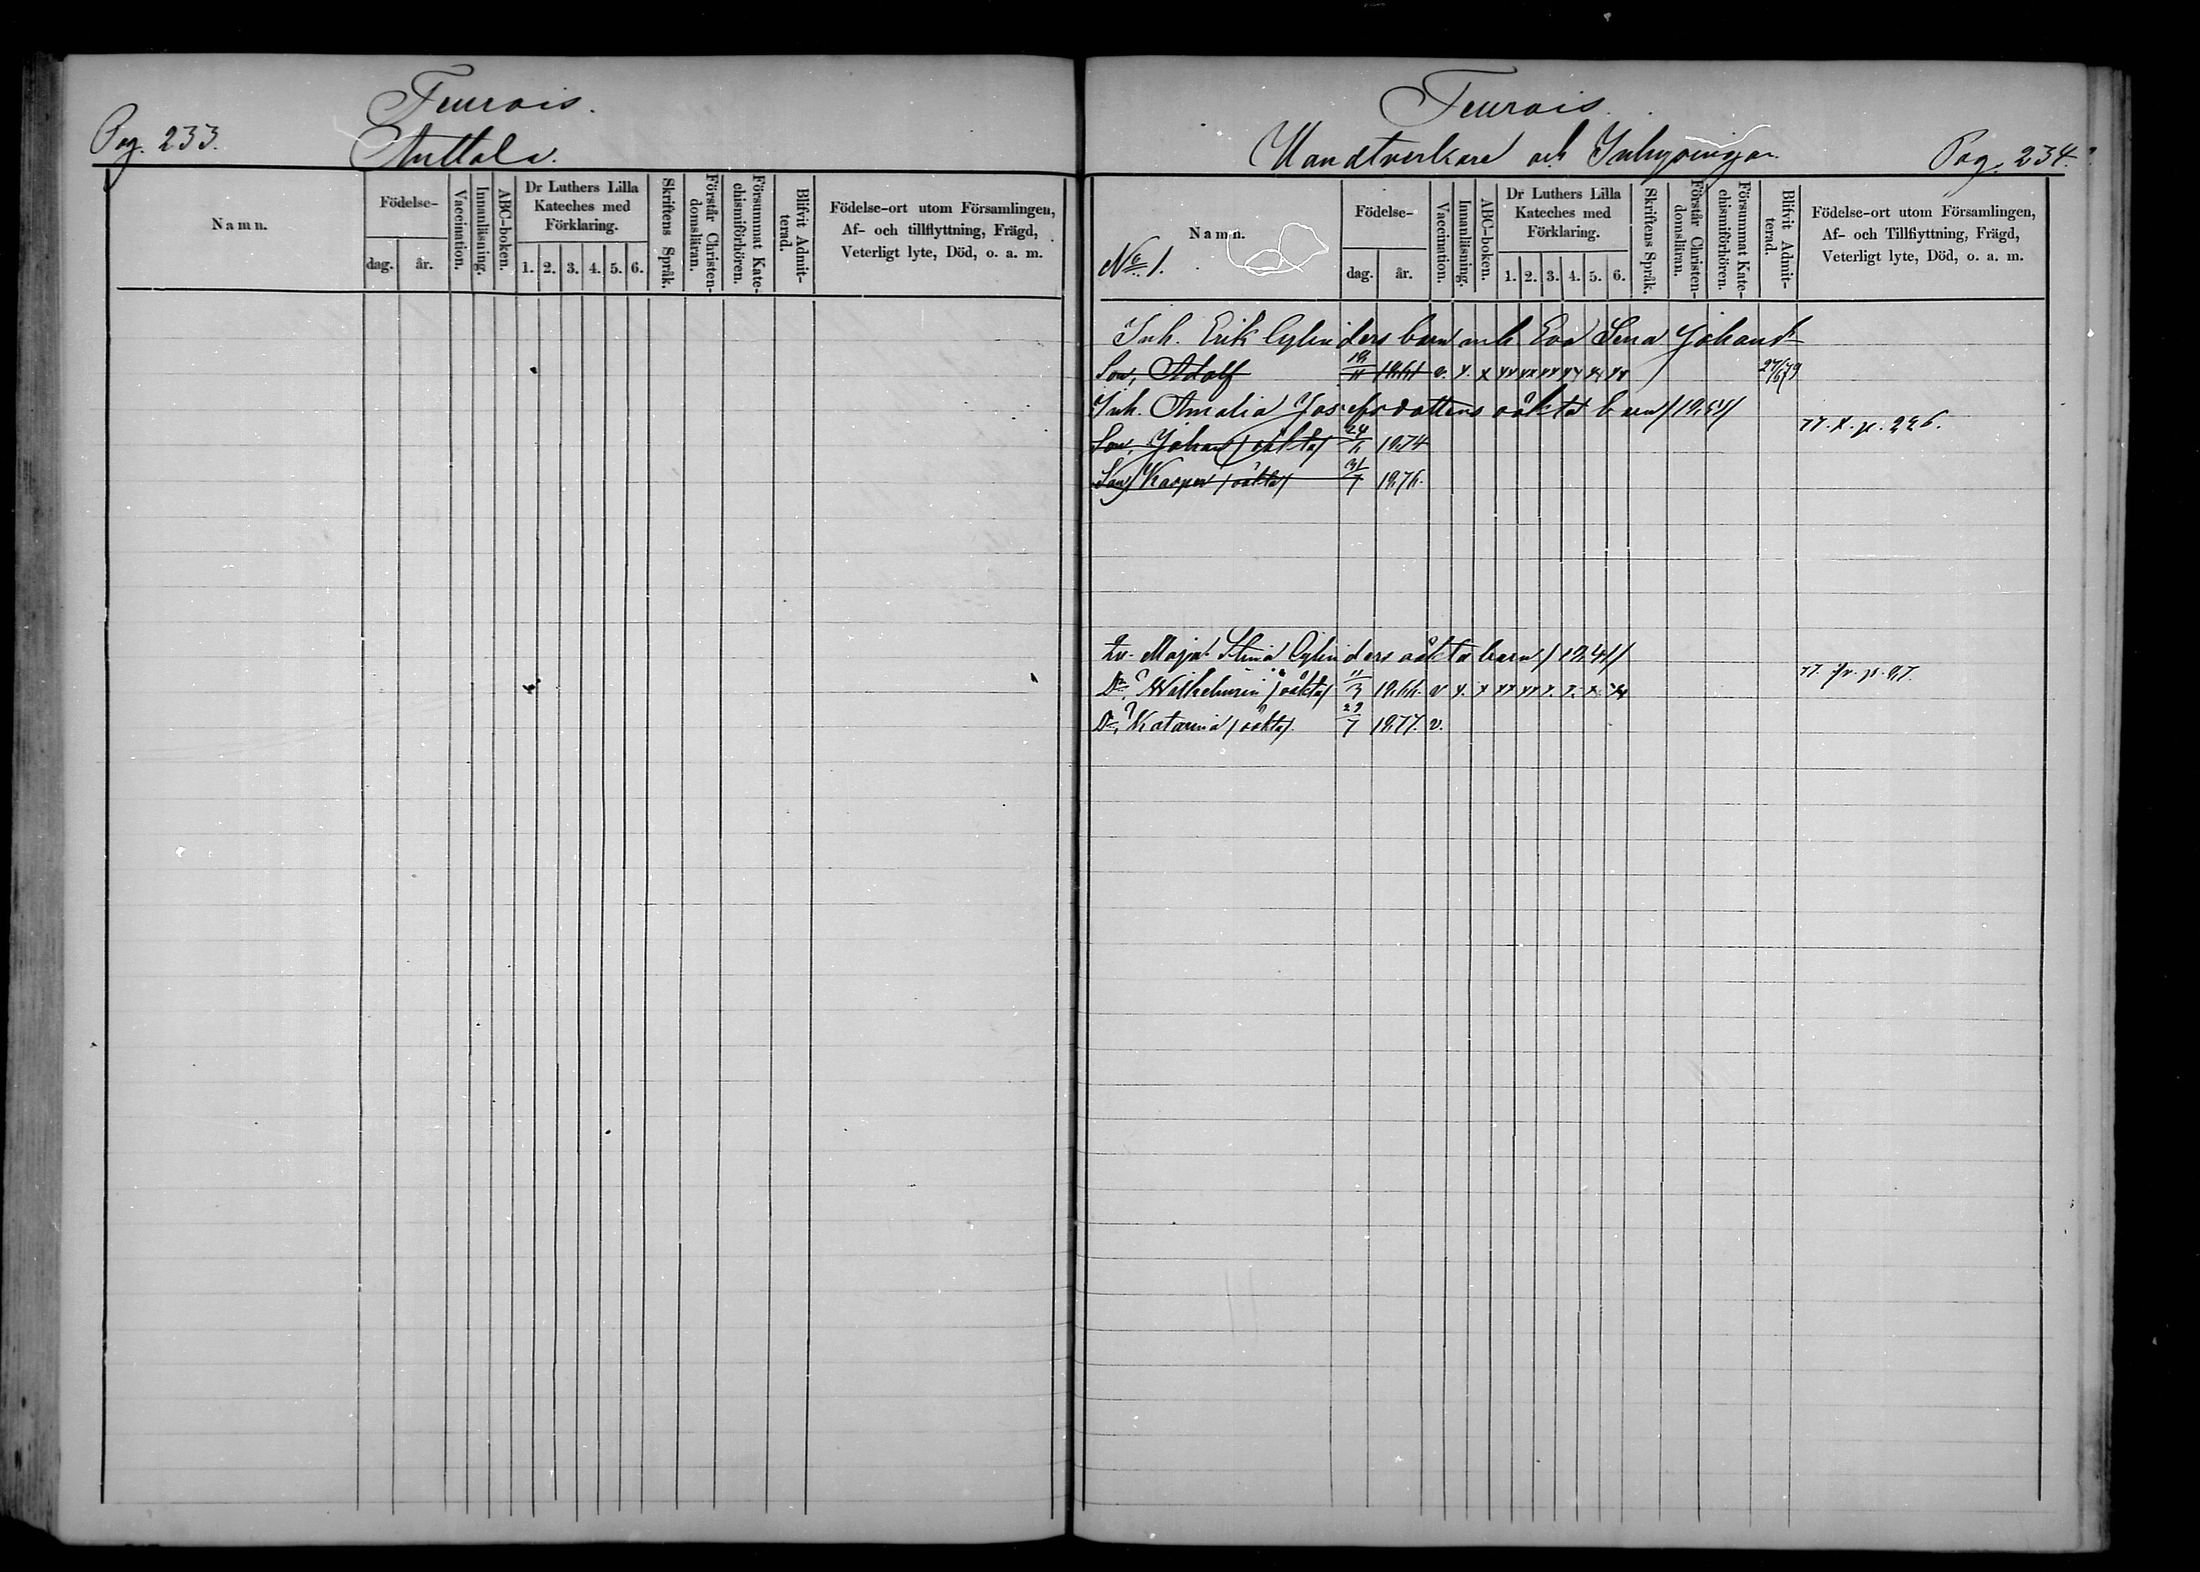 Pag. 233.
Teurois.
Anttala.
Namn.
Födelse-
dag.
år.
Vaccination.
Innanläsning.
ABC-boken.
Dr Luthers Lilla
Kateches med
Förklaring.
1. 2. 3. 4. 5. 6.
Skriftens Språk.
Förstår Christen-
domsläran.
Försummat Kate-
chismiförhören.
Blifvit Admit-
terad.
Födelse-ort utom Församlingen,
Af- och tillflyttning, Frägd,
Veterligt lyte, Död, o. a. m.
Teurois.
Handtverkare och Inhysingar.
Pag. 234.
No 1.
Namn.
Födelse-
dag.
år.
Vaccination.
Innanläsning.
ABC-boken.
Dr Luthers Lilla
Kateches med
Förklaring.
1. 2. 3. 4. 5. 6.
Skriftens Språk.
Förstår Christen-
domsläran.
Försummat Kate-
chismiförhören.
Blifvit Admit-
terad.
Födelse-ort utom Församlingen,
Af- och Tillflyttning, Frägd,
Veterligt lyte, Död, o. a. m.
Inh. Erik Cylinders barn m. h. Eva Lena Johansd.
Son, Adolf v. x. x xx xx xx xx
Inh. Amalia Josefsdotters oäkta barn
77. X. p. 226.
Son, Johan /oäkta/ 24 1874
Son, Kasper /oäkta/ 31/7 1876.
Maja Stina Cylinders oäkta barn /1841/
Dr, Wilhelmina /oäkta/ 11/3 1866. v x. x xx xx x. x. x.
Dr, Katarina /oäkta/. 29/7 1877. v.